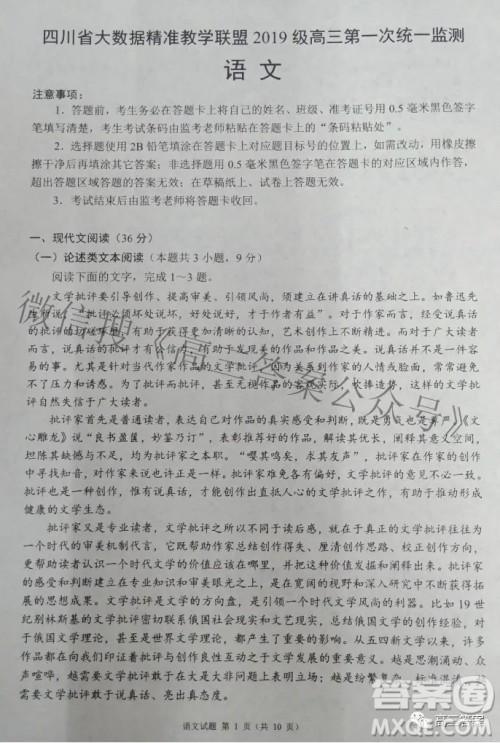 四川省大数据精准教学联盟 2019 级高三第一次统一监测
语 文
注意事项：
1．答题前，考生务必在答题卡上将自己的姓名、班级、准考证号用 0.5 毫米黑色签字
笔填写清楚，考生考试条码由监考老师粘贴在答题卡上的“条码粘贴处”。
2．选择题使用 2B 铅笔填涂在答题卡上对应题目标号的位置上，如需改动，用橡皮擦
擦干净后再填涂其它答案；非选择题用 0.5 毫米黑色签字笔在答题卡的对应区域内作答，
超出答题区域答题的答案无效；在草稿纸上、试卷上答题无效。
3．考试结束后由监考老师将答题卡收回。
一、现代文阅读（36 分）
（一）论述类文本阅读（本题共 3 小题，9 分）
阅读下面的文字，完成 1～3 题。
文学批评要引导创作、提高审美、引领风尚，须建立在讲真话的基础之上。如鲁迅先
生所说，“批评必须坏处说坏，好处说好，才于作者有益”。对于作家而言，经受说真话的
批评，才能使作品的成败得失获得更加清晰的认知，艺术创作上不断精进。而对于广大读者
而言，说真话的文学批评有助于发现更美的作品和作品之美。说真话并不是一件容易的
事。尤其是针对当代作家作品的文学批评，时常会受到来自作家的人情或脸面，常常避免
不了压力和诱惑。为了批评而批评，甚至无视作品的客观实际，吹捧造势，这样的文学批
评自然失信于广大读者。
批评家首先是普通读者，表达自己对作品的真实感受和判断，既是勇气也是尊严。《文
心雕龙》说“良书盈箧，妙鉴乃订”，表彰推荐好的作品，解读其优长，阐释其意义空间，
坦陈其缺憾与不均，是批评家之本职。“嘤其鸣矣，求其友声”，批评家在作家的创作
中寻找知音，对作家也是一样。批评家难免各有偏好，文学批评的意见不必一致。
批评也是一种创作，惟有说真话，才能使文学批评介入文学创作，有助于推动形成
健康的文学生态。
批评家又是专业读者，文学批评之所以不同于读后感，就在于真正的文学批评往往关乎
一个时代的审美机制代言，它既能帮助作家总结创作得失、厘清创作思路、校正创作方向，
更帮助读者认识到一个时代文学的价值应该在哪里，并把这种价值发掘阐释出来。文学批评
的感受和判断建立在专业知识和审美眼光之上，是在宽阔的视野和深入研究中不断获得
发展的。文学批评是文学的方向盘，是引领一个时代文学风尚的利器。比如 19 世
纪别林斯基的文学批评密切联系俄国社会现实和文艺现实，总结俄国文学的创作经验，对
于俄国文学理论，甚至是世界文学理论，都产生了重要的影响。从五四新文学以来，许多
作品都在向我们印证着文学批评与创作良性互动之于文学的意义。越是思潮涌动、众
声喧哗，越是需要文学批评敢于在大是大非问题上表明立场。越是标准混乱，
需要文学批评敢于说真话、亮出真态度。
语文试题 第 1 页（共 10 页）
微信搜《高三答案公众号》
答案圈
MXQE.COM
高三答案